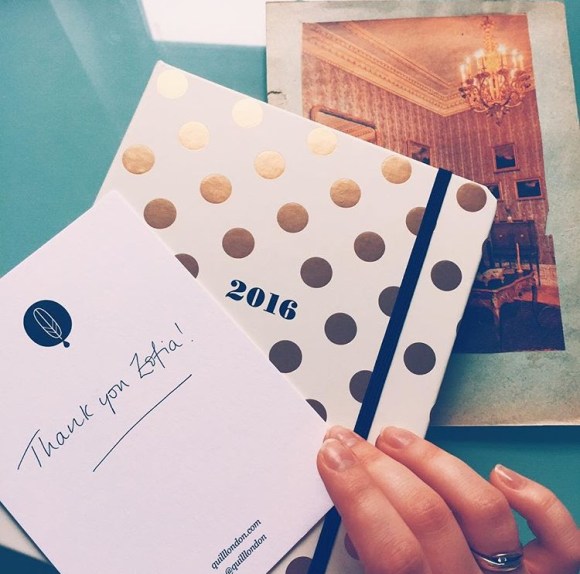 2016
Thank you Zofia!
quilllondon.com
@quilllondon